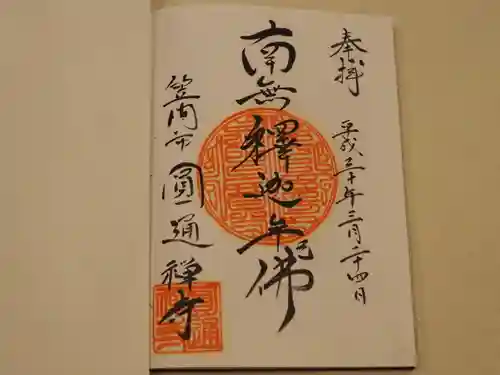 奉拝
平成三十年三月二十四日
南無釋迦牟尼佛
笠间市 圓通禅寺